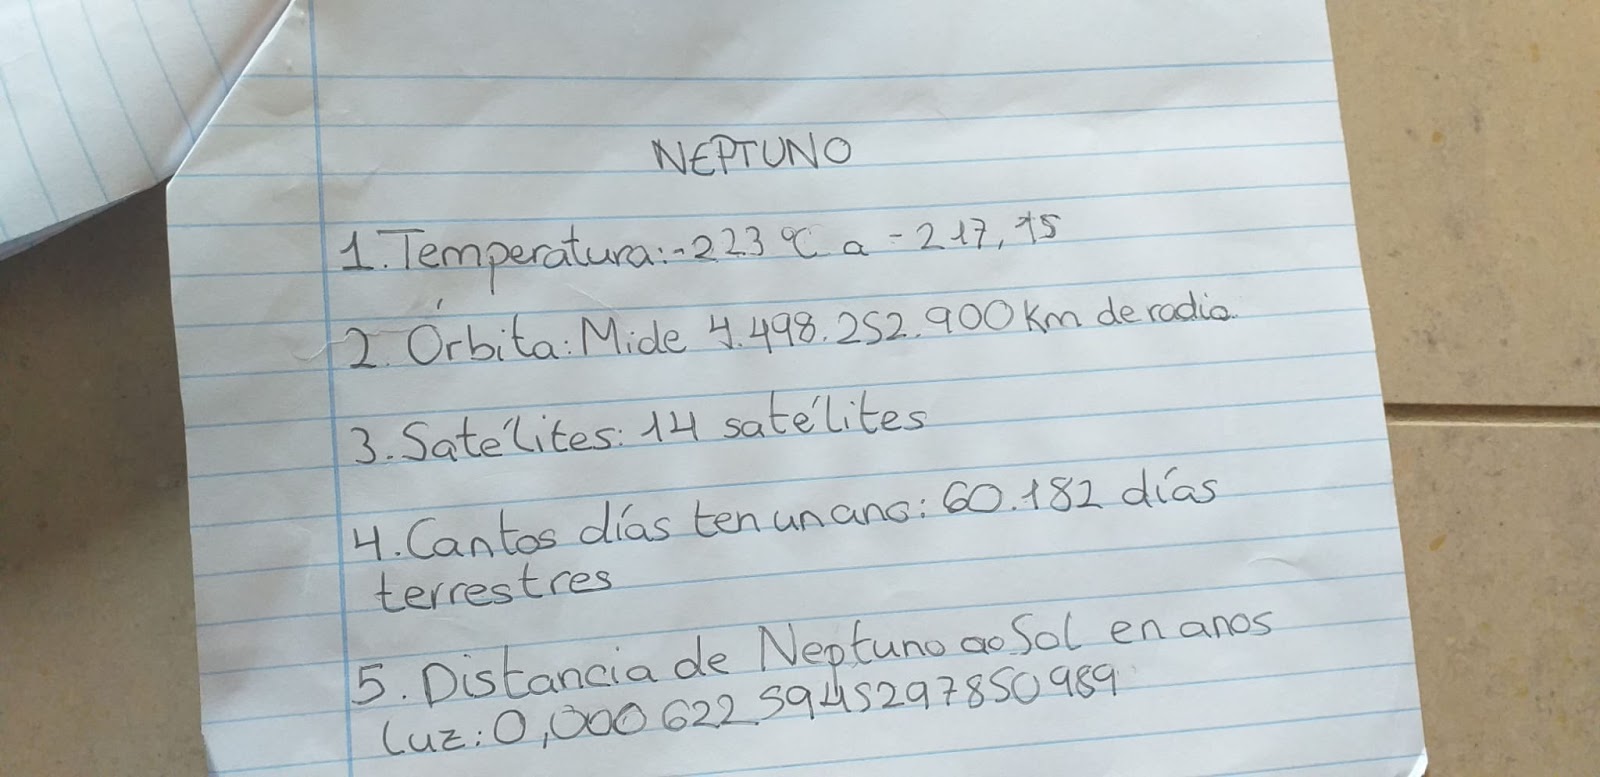 NEPTUNO
1. Temperatura: -223 ºC a -217,15
2. Órbita: Mide 4.498.252.900 Km de radio.
3. Satélites: 14 satélites
4. Cantos días ten un ano: 60.182 días
terrestres
5. Distancia de Neptuno ao Sol en anos
luz: 0,0006225945297850989